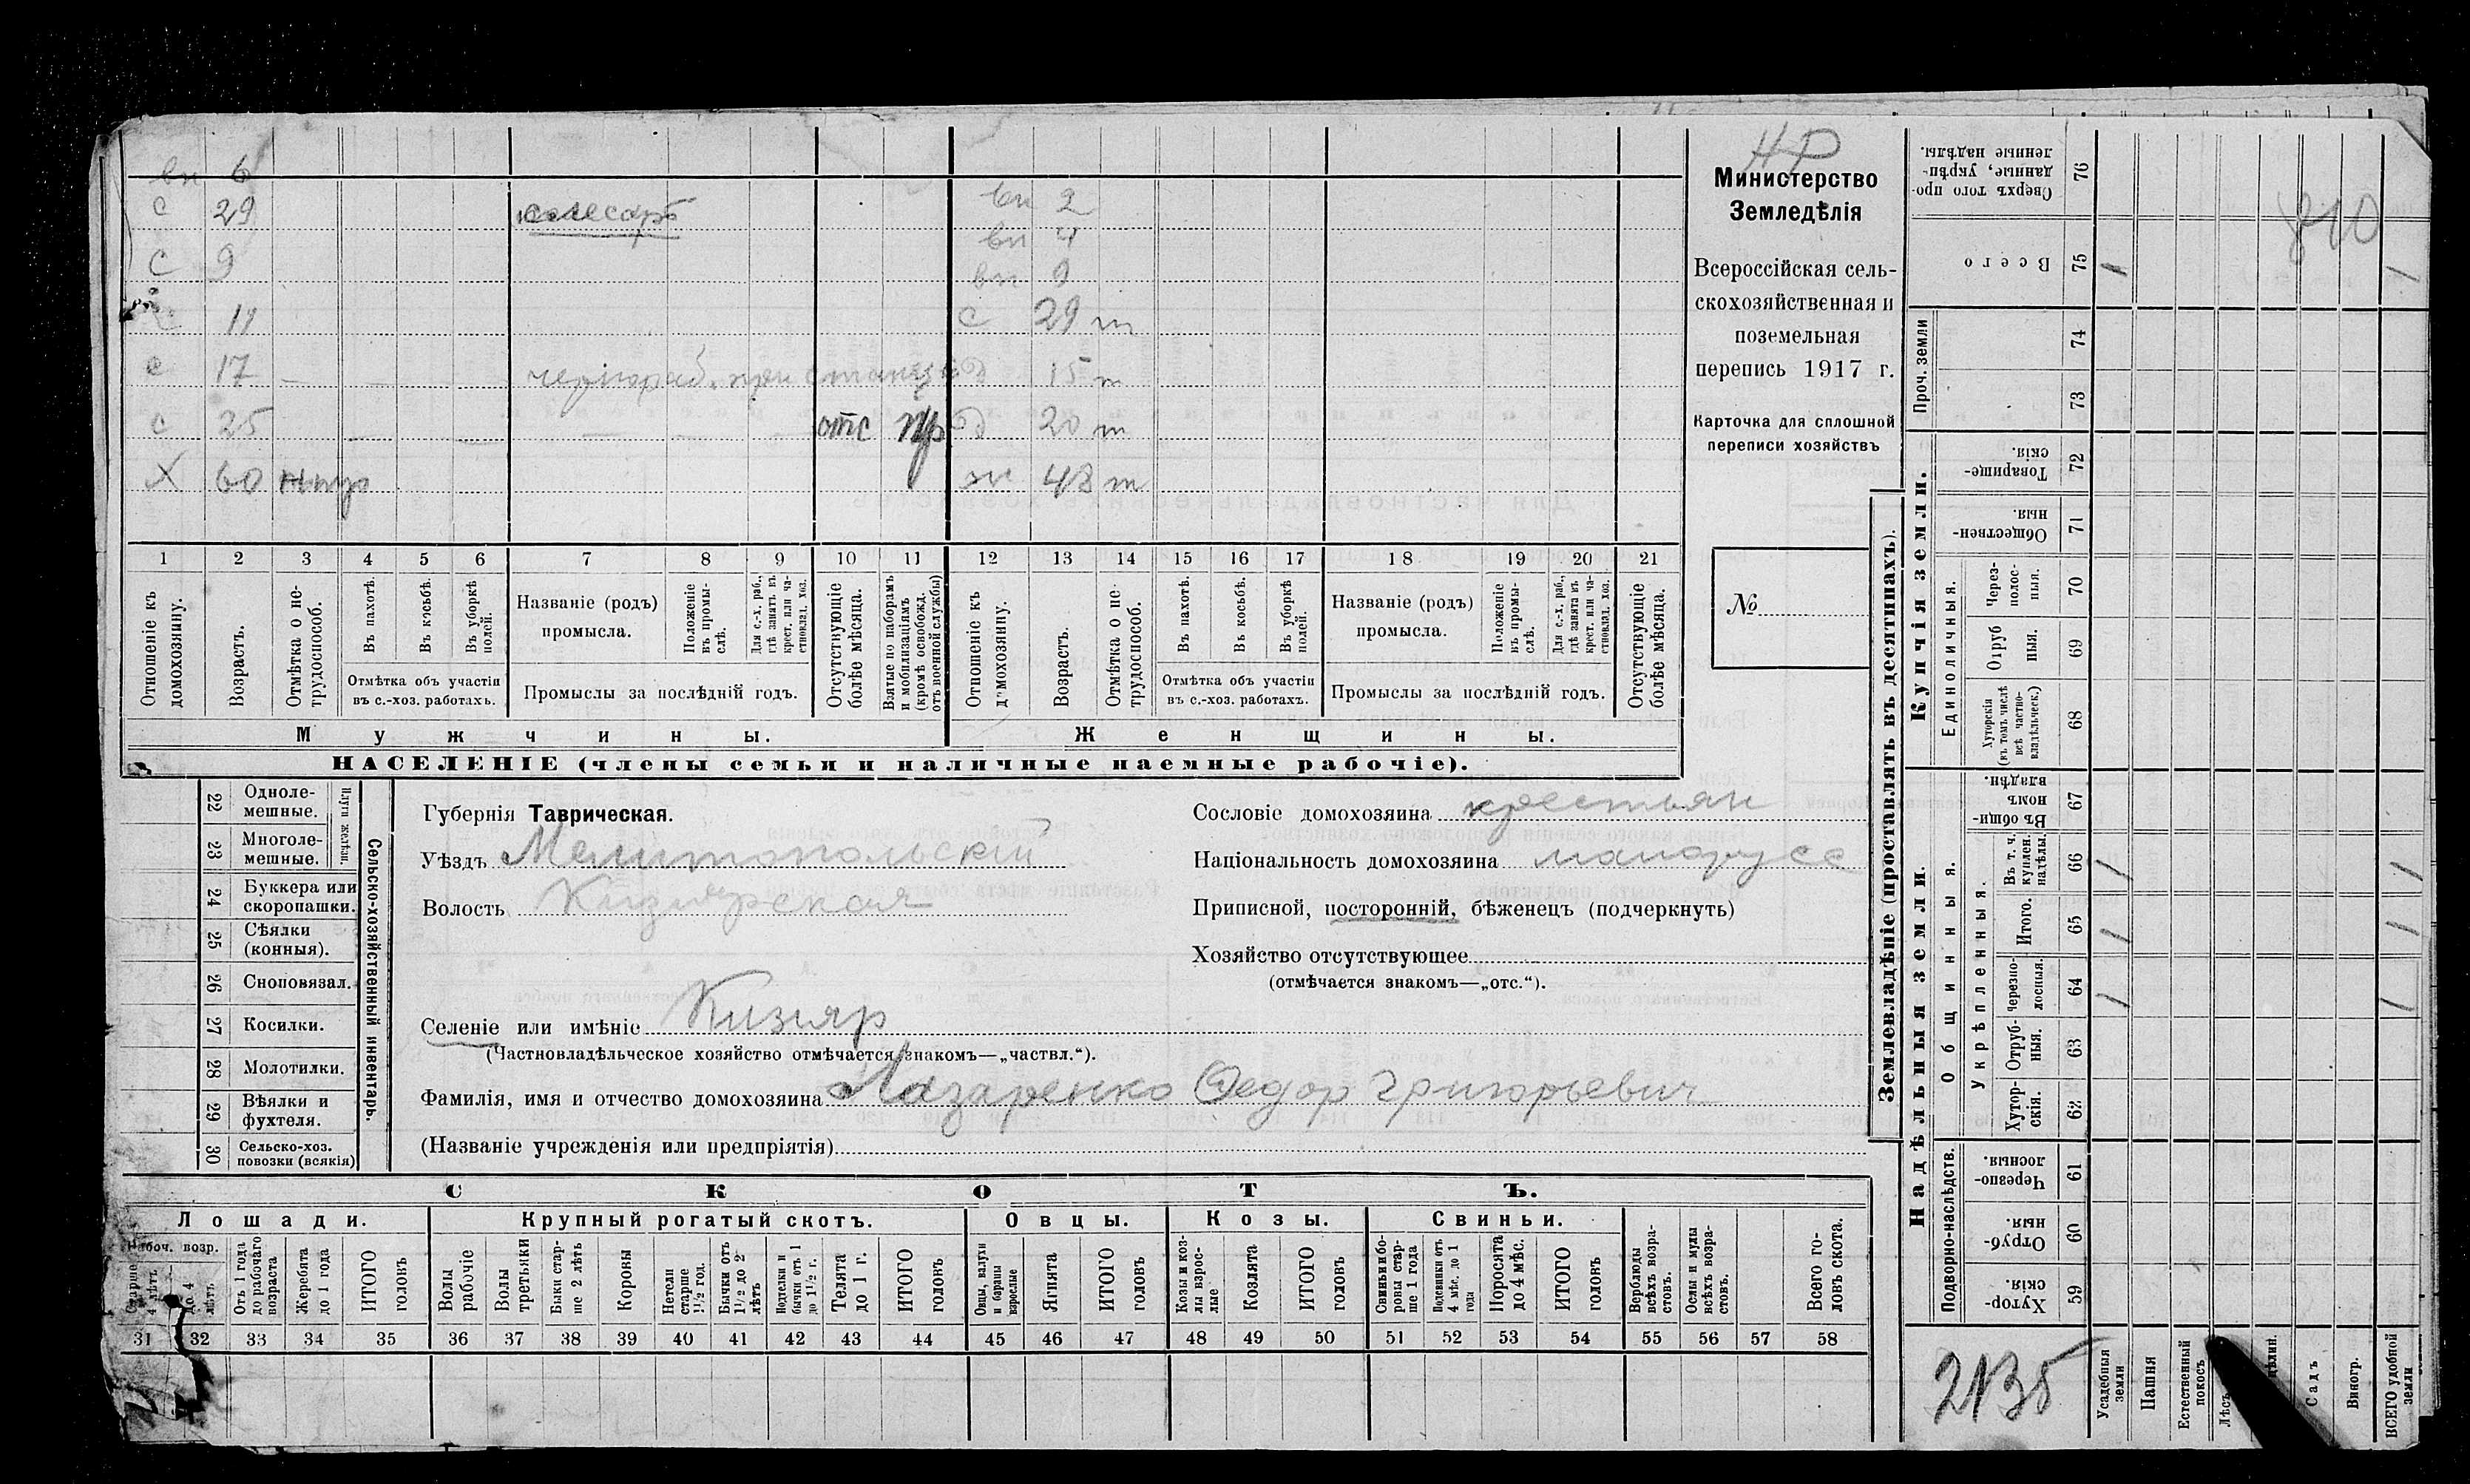 вн 6
с 29 слесарь вн 2
вн 4
С 9 вн 9
11 с 29 т
с 17 — чернораб. при станции д 15 т
с 25 отс д 20 т
Х 60 жн 48 т
1 2 3 4 5 6 7 8 9 10 11 12 13 14 15 16 17 18 19 20 21
Отношеніе къ домохозяину.
Возрастъ.
Отмѣтка о нетрудоспособ.
Въ пахотѣ.
Въ косьбѣ.
Въ уборкѣ полей.
Отмѣтка объ участіи
въ с.-хоз. работахъ.
Названіе (родъ)
промысла.
Положеніе въ промыслѣ.
Для с.-х. раб., гдѣ занятъ въ крест. или частновлад. хоз.
Промыслы за послѣдній годъ.
Отсутствующіе болѣе мѣсяца.
Взятые по наборамъ и мобилизаціямъ (кромѣ освобожд. отъ военной службы)
Отношеніе къ домохозяину.
Возрастъ.
Отмѣтка о нетрудоспособ.
Въ пахотѣ.
Въ косьбѣ.
Въ уборкѣ полей.
Отмѣтка объ участіи
въ с.-хоз. работахъ.
Названіе (родъ)
промысла.
Положеніе въ промыслѣ.
Для с.-х. раб., гдѣ занята въ крест. или частновлад. хоз.
Промыслы за послѣдній годъ.
Отсутствующіе болѣе мѣсяца.
Мужчины. Женщины.
НАСЕЛЕНІЕ (члены семьи и наличные наемные рабочіе).
НР
Министерство
Земледѣлія
Всероссійская сель-
скохозяйственная и
поземельная
перепись 1917 г.
Карточка для сплошной
переписи хозяйствъ
№
22 Однолемешные.
23 Многолемешные.
Плуги желѣзн.
24 Буккера или скоропашки.
25 Сѣялки (конныя).
26 Сноповязал.
27 Косилки.
28 Молотилки.
29 Вѣялки и фухтеля.
30 Сельско-хоз. повозки (всякія)
Сельско-хозяйственный инвентарь.
Губернія Таврическая.
Уѣздъ Мелитопольскій
Волость Кизиярская
Селеніе или имѣніе Кизияр
(Частновладѣльческое хозяйство отмѣчается знакомъ—„частвл.“).
Фамилія, имя и отчество домохозяина Лазаренко Федор Григорьевич
(Названіе учрежденія или предпріятія)
Сословіе домохозяина крестьян
Національность домохозяина малорусс
Приписной, посторонній, бѣженецъ (подчеркнуть)
Хозяйство отсутствующее
(отмѣчается знакомъ—„отс.“).
СКОТЪ.
Лошади. Крупный рогатый скотъ. Овцы. Козы. Свиньи.
Рабоч. возр.
Старше 4 лѣтъ
До 4 лѣтъ
Отъ 1 года до рабочаго возраста
Жеребята до 1 года
ИТОГО головъ
Волы рабочіе
Волы третьяки
Быки старше 2 лѣтъ
Коровы
Нетели старше 1½ год.
Бычки отъ 1½ до 2 лѣтъ
Подтелки и бычки отъ 1 до 1½ г.
Телята до 1 г.
ИТОГО головъ
Овцы, валухи и бараны взрослые
Ягнята
ИТОГО головъ
Козы и козлы взрослые
Козлята
ИТОГО головъ
Свиньи и боровы старше 1 года
Подсвинки отъ 4 мѣс. до 1 года
Поросята до 4 мѣс.
ИТОГО головъ
Верблюды всѣхъ возрастовъ.
Ослы и мулы всѣхъ возрастовъ.
Всего головъ скота.
31 32 33 34 35 36 37 38 39 40 41 42 43 44 45 46 47 48 49 50 51 52 53 54 55 56 57 58
Землевладѣніе (проставлять въ десятинахъ).
Купчія земли.
Надѣльныя земли.
Сверхъ того проданные, укрѣпленные надѣлы. 76
Всего 75
810
Проч. земли 74
73
Товарищескія. 72
Общественныя. 71
Единоличныя.
Черезполосныя. 70
Отрубныя. 69
Хуторскія (въ томъ числѣ всѣ частновладѣльческ.) 68
Общинныя.
Въ общинномъ владѣн. 67
Укрѣпленныя.
Въ т. ч. куплен. надѣлы. 66
Итого. 65
Черезполосныя. 64
Отрубныя. 63
Хуторскія. 62
Подворно-наслѣдств.
Черезполосныя. 61
Отрубныя. 60
Хуторскія. 59
Усадебныя земли
Пашня
Естественный покосъ
Лѣсъ
Садъ
Виногр.
ВСЕГО удобной земли